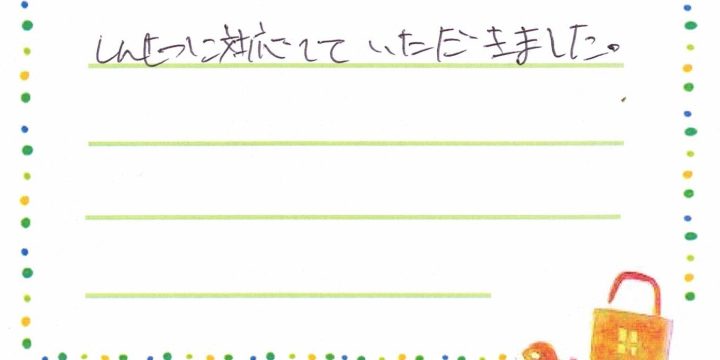 しんせつに対応して いただきました。